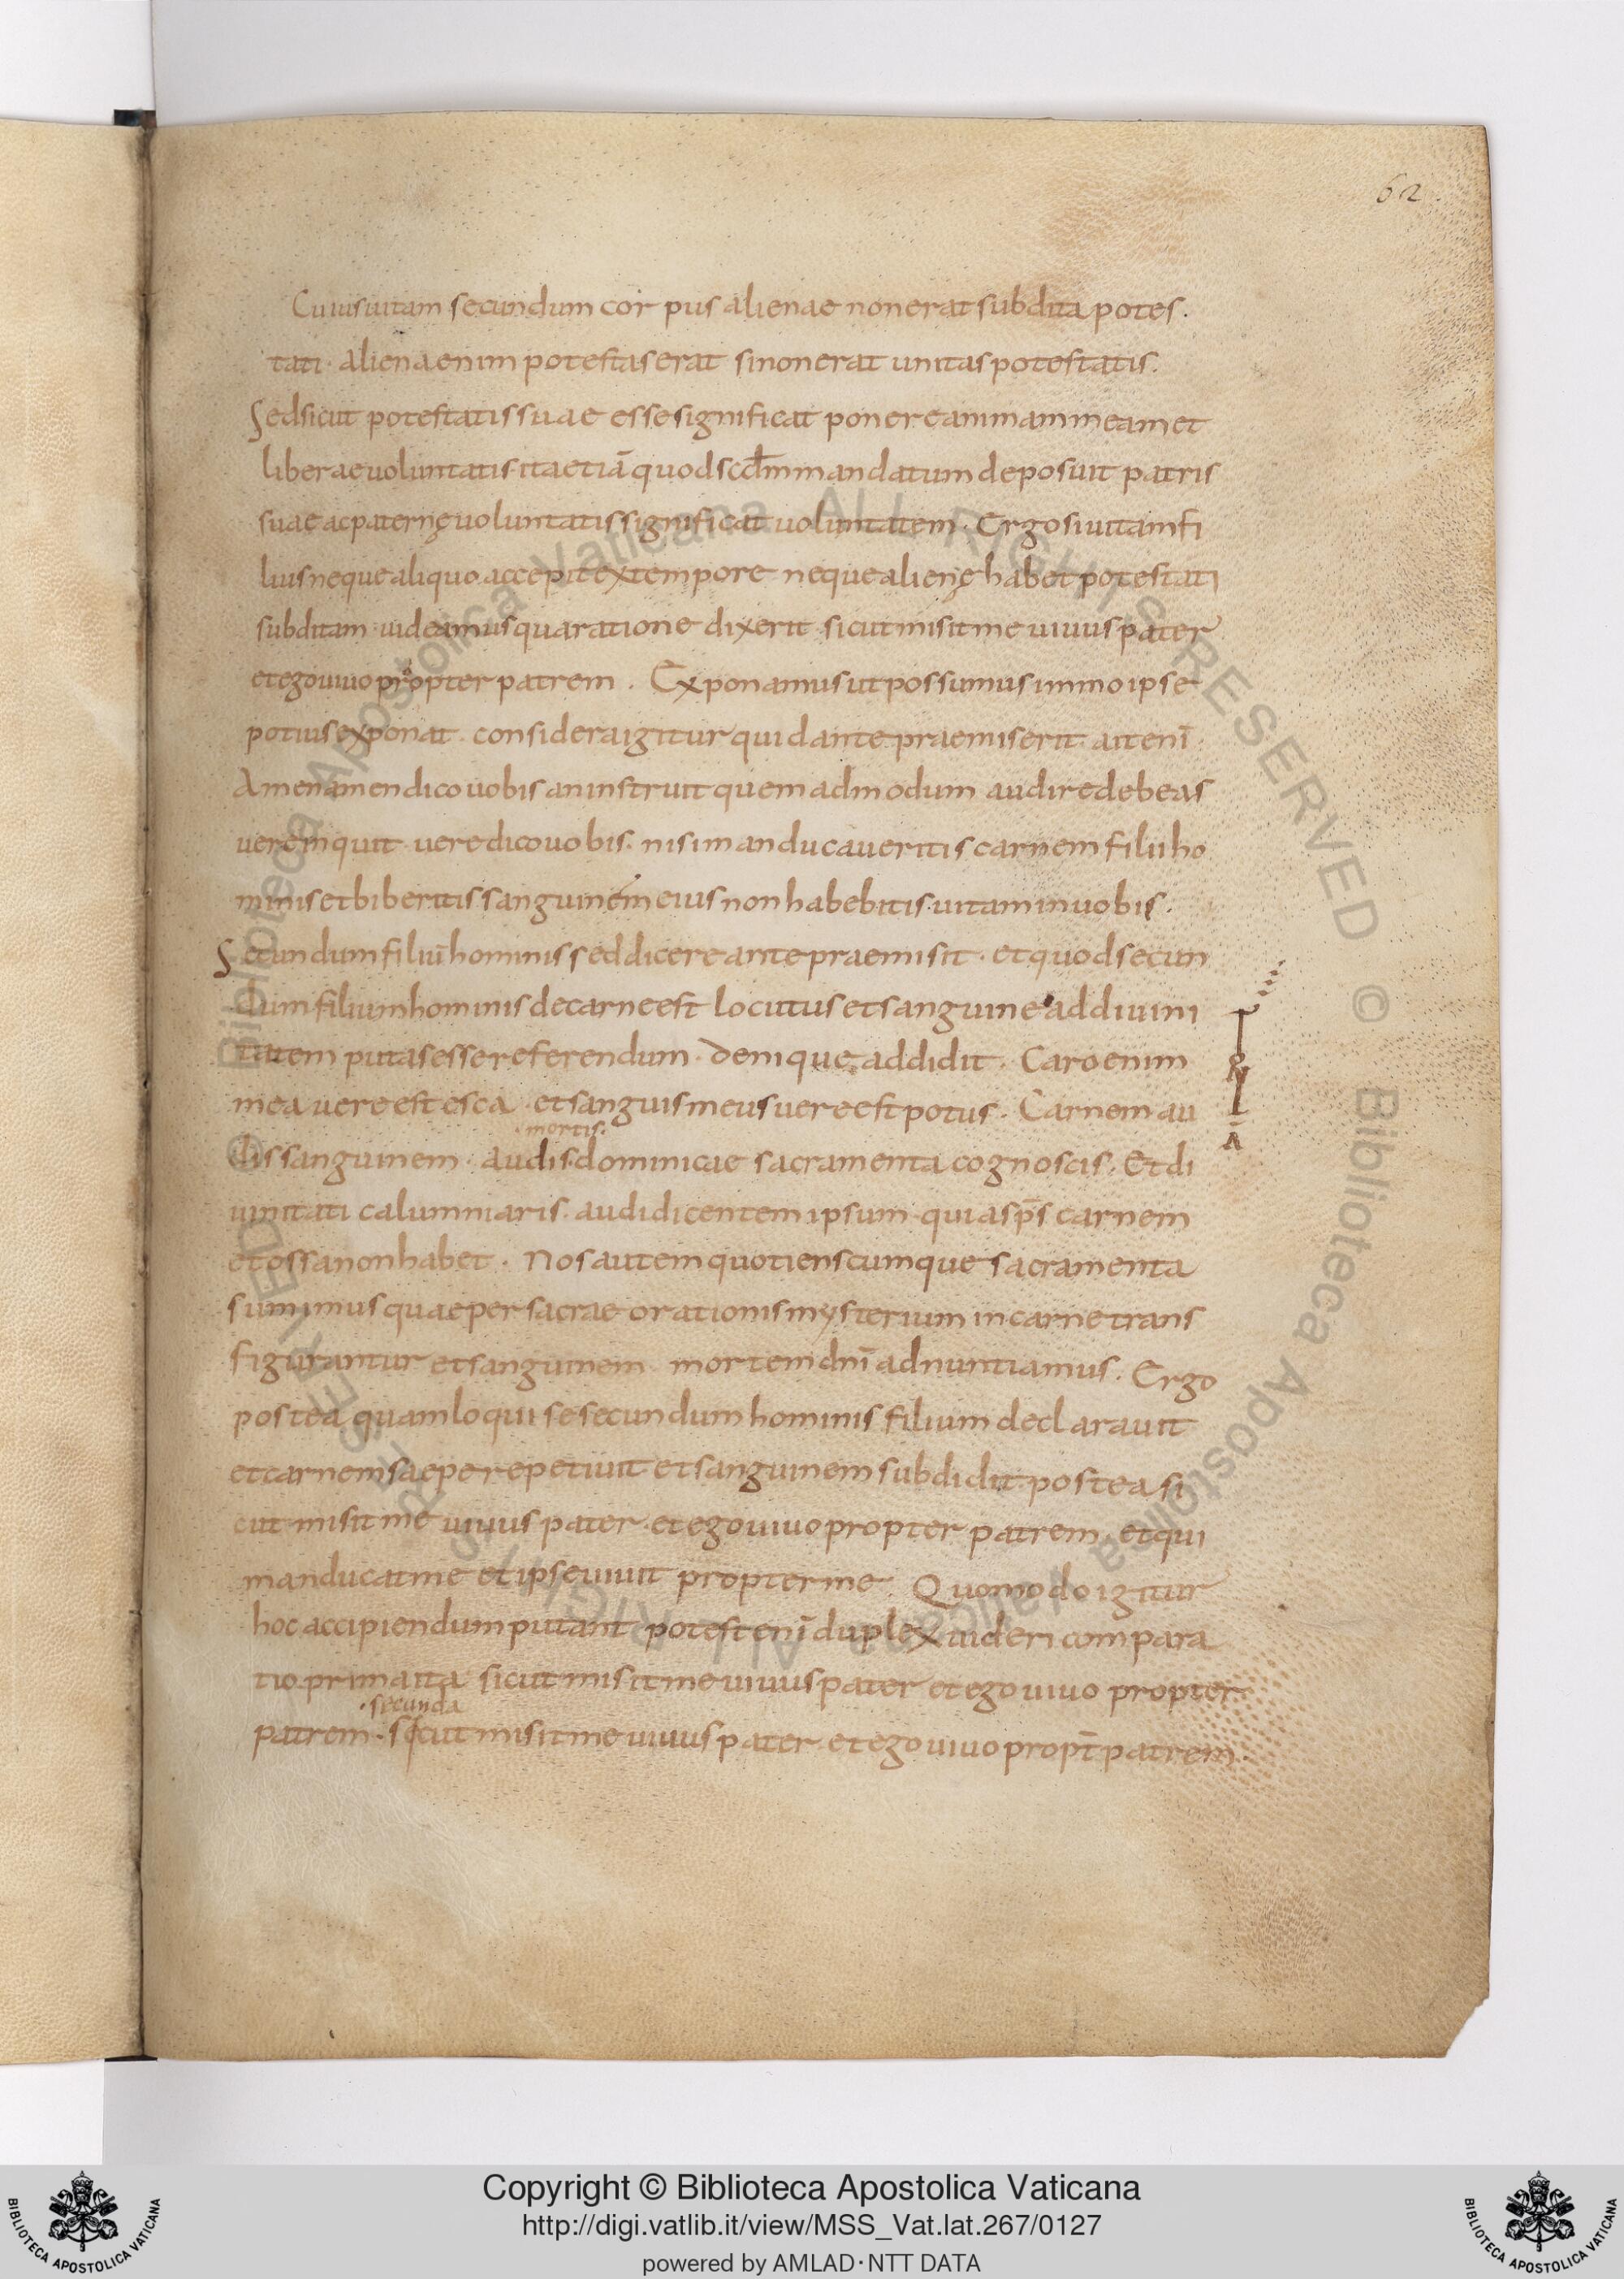 62
Cuius uitam secundum corpus alienae non erat subdita potes.
tati. aliena enim potestas erat si non erat unitas potestatis.
Sed sicut potestatis suae esse significat ponere animam meam et
liberae uoluntatis. ita etiā quod scdm̄ mandatum deposuit patris
suae ac paternę uoluntatis significat uoluntatem. Ergo si uitam fi
lius neque aliquo accepit ex tempore neque alienę habet potestati
subditam. uideamus qua ratione dixerit sicut misit me uiuus pater
et ego uiuo propter patrem. Exponamus ut possumus immo ipse
potius exponat. considera igitur quid ante praemiserit. ait enī.
Amen amen dico uobis an instruit quemadmodum audire debeas
uere inquit uere dico uobis. nisi manducaueritis carnem filii ho
minis et biberitis sanguinem eius non habebitis uitam in uobis.
Secundum filiū hominis sed dicere ante praemisit. et quod secun
dum filium hominis de carne est locutus et sanguine ad diuini
tatem putas esse referendum. denique addidit. Caro enim
mea uere est esca. et sanguis meus uere est potus. Carnem au
mortis.
dis sanguinem. audis. dominicae sacramenta cognoscis. Et di
uinitati calumniaris. audi dicentem ipsum. quia sp̄s carnem
et ossa non habet. Nos autem quotienscumque sacramenta
sumimus quae per sacrae orationis mysterium in carne trans
figurantur et sanguinem mortem dnī adnuntiamus. Ergo
postea quam loqui se secundum hominis filium declarauit
et carnem saepe repetiuit et sanguinem subdidit. postea si
cut misit me uiuus pater. et ego uiuo propter patrem. et qui
manducat me et ipse uiuit propter me. Quomodo igitur
hoc accipiendum putant potest enī duplex uideri compara
tio prima ita sicut misit me uiuus pater et ego uiuo propter
.secunda
patrem. sicut misit me uiuus pater. et ego uiuo propt̄ patrem.
© Biblioteca Apostolica Vaticana ALL RIGHTS RESERVED © Biblioteca Apostolica Vaticana ALL RIGHTS RESERVED
BIBLIOTECA APOSTOLICA VATICANA
Copyright © Biblioteca Apostolica Vaticana
http://digi.vatlib.it/view/MSS_Vat.lat.267/0127
powered by AMLAD·NTT DATA
BIBLIOTECA APOSTOLICA VATICANA